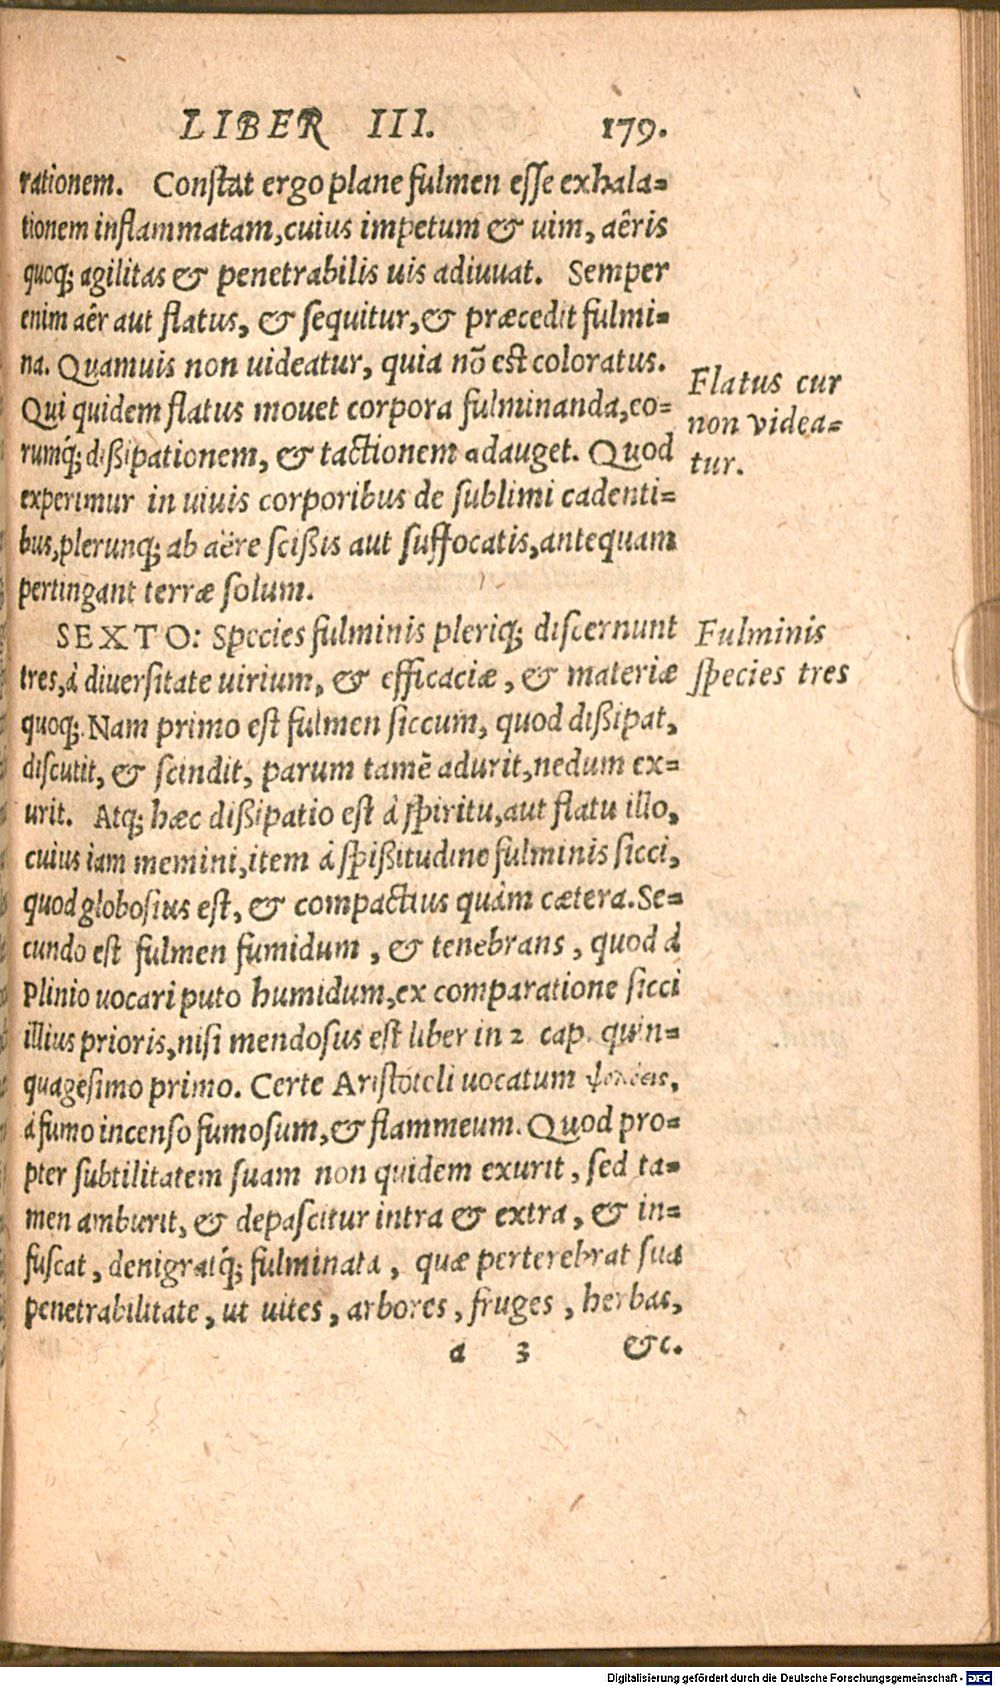 LIBER III. 179.
rationem. Constat ergo plane fulmen esse exhala=
tionem inflammatam, cuius impetum & uim, aëris
quoq; agilitas & penetrabilis uis adiuuat. Semper
enim aër aut flatus, & sequitur, & præcedit fulmi=
na. Quamuis non uideatur, quia nõ est coloratus.
Qui quidem flatus mouet corpora fulminanda, eo=
rumq́; dißipationem, & tactionem adauget. Quod
experimur in uiuis corporibus de sublimi cadenti=
bus, plerunq; ab aëre scißis aut suffocatis, antequam
pertingant terræ solum.
Flatus cur
non videa=
tur.
SEXTO: Species fulminis pleriq; discernunt
tres, à diuersitate uirium, & efficaciæ, & materiæ
quoq;. Nam primo est fulmen siccum, quod dißipat,
discutit, & scindit, parum tamẽ adurit, nedum ex=
urit. Atq; hæc dißipatio est à spiritu, aut flatu illo,
cuius iam memini, item à spißitudine fulminis sicci,
quod globosius est, & compactius quàm cætera. Se=
cundo est fulmen fumidum, & tenebrans, quod à
Plinio uocari puto humidum, ex comparatione sicci
illius prioris, nisi mendosus est liber in 2 cap. quin=
quagesimo primo. Certe Aristoteli uocatum
à fumo incenso fumosum, & flammeum. Quod pro=
pter subtilitatem suam non quidem exurit, sed ta=
men amburit, & depascitur intra & extra, & in=
fuscat, denigratq́; fulminata, quæ perterebrat sua
penetrabilitate, ut uites, arbores, fruges, herbas,
Fulminis
species tres
a 3 &c.
Digitalisierung gefördert durch die Deutsche Forschungsgemeinschaft - DFG